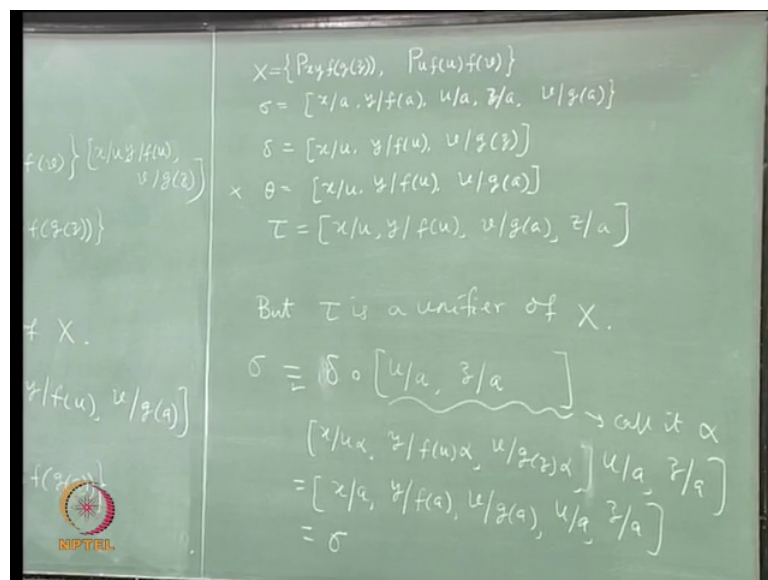 f(v)} [x/u y/f(u),
v/g(z)]
f(g(z))}
f X.
y/f(u), v/g(a)]
f(g(a))}
X = {Pxyf(g(z)), Puf(u)f(v)}
σ = [x/a, y/f(a), u/a, z/a, v/g(a)]
δ = [x/u, y/f(u), v/g(z)]
× θ = [x/u, y/f(u), v/g(a)]
τ = [x/u, y/f(u), v/g(a), z/a]
But τ is a unifier of X.
σ = δ ∘ [u/a, z/a ]
→ call it α
[x/uα, y/f(u)α, v/g(z)α] u/a, z/a]
= [x/a, y/f(a), v/g(a), u/a, z/a]
= σ
NPTEL